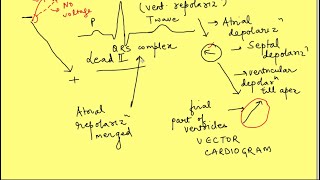 No
voltage
(vent. repolariz^n)
P
T wave
QRS complex
Lead II
+
Atrial
repolariz^n
merged
→ Atrial
depolariz^n
→ Septal
depolariz^n
→ ventricular
depolar^n
till apex
final
part of
ventricles
VECTOR
CARDIOGRAM